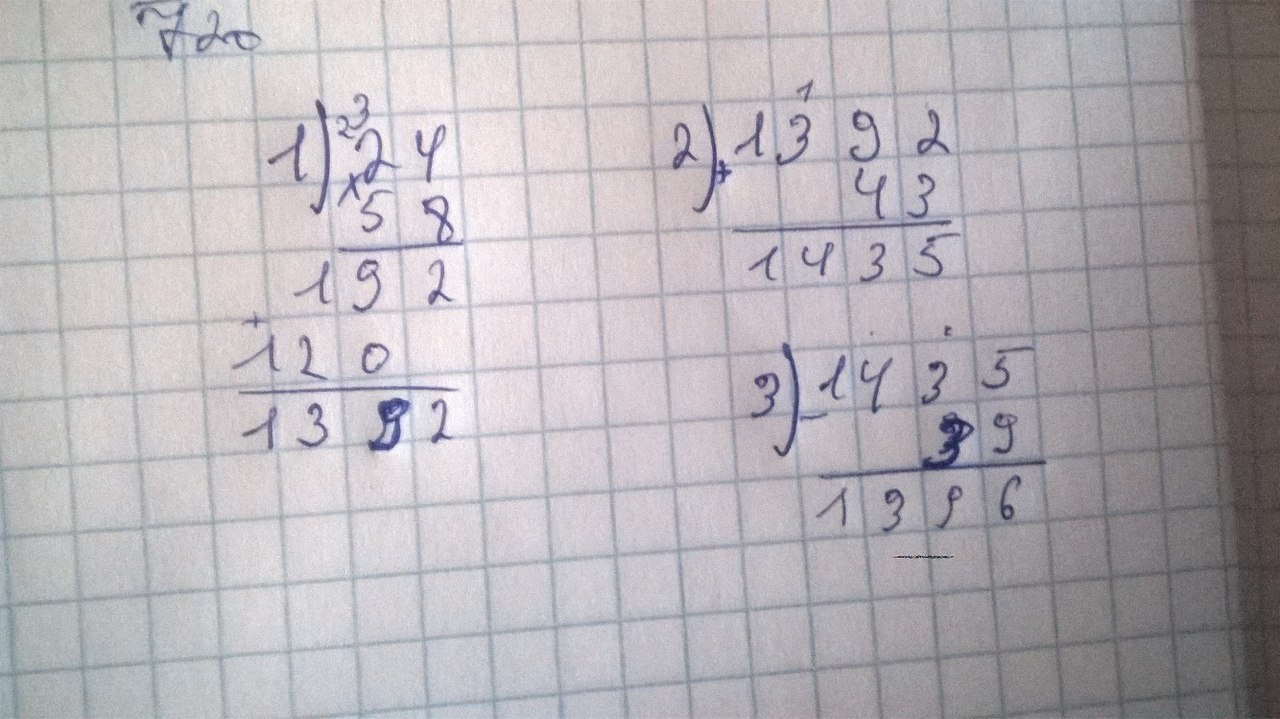 720
1) 23
24
× 58
192
+ 120
1392
2) 1
1392
+ 43
1435
3) 1435
- 39
1396